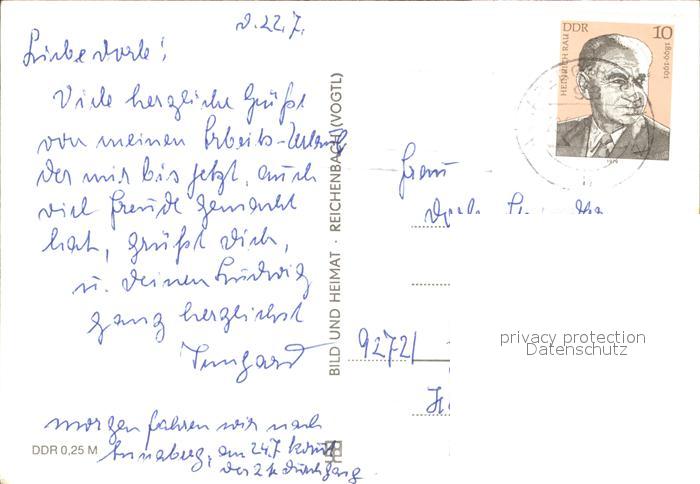 d. 22.7.
Liebe Dorle!
Viele herzliche Grüße
von meinem Arbeits-Urlaub
der mir bis jetzt, auch
viel Freude gemacht
hat, grüßt Dich,
u. Deinen Ludwig
ganz herzlichst
Irmgard
morgen fahren wir nach
Annaberg, am 24.7 kommt
der 2te Durchgang
DDR 0,25 M
BILD UND HEIMAT · REICHENBACH (VOGTL)
DDR 10
HEINRICH RAU
1899-1961
Frau
9272
privacy protection
Datenschutz